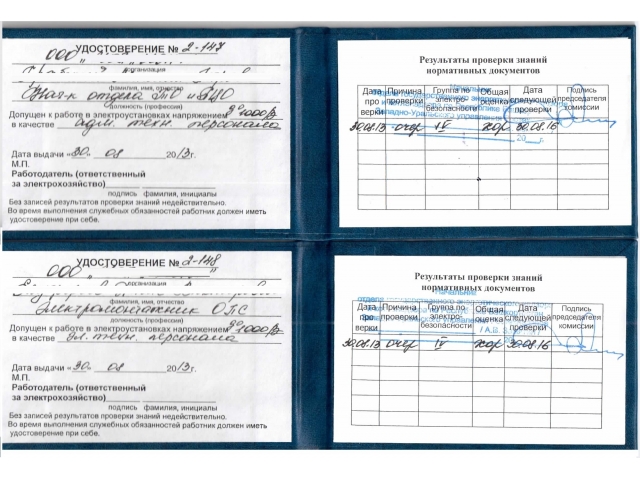 УДОСТОВЕРЕНИЕ № 2-147
ООО "
организация
фамилия, имя, отчество
отдела
должность (профессия)
Допущен к работе в электроустановках напряжением до 1000 В
в качестве адм. техн. персонала
Дата выдачи «30» 08 2013г.
М.П.
Работодатель (ответственный
за электрохозяйство)
подпись фамилия, инициалы
Без записей результатов проверки знаний недействительно.
Во время выполнения служебных обязанностей работник должен иметь
удостоверение при себе.
Результаты проверки знаний
нормативных документов
Дата про верки Причина проверки Группа по электро- безопасности Общая оценка Дата следующей проверки Подпись председателя комиссии
Западно-Уральского управления
30.08.13 очер IV хор 30.08.16
УДОСТОВЕРЕНИЕ № 2-148
ООО "
организация
фамилия, имя, отчество
Электромонтажник ОПС
должность (профессия)
Допущен к работе в электроустановках напряжением до 1000 В
в качестве эл. техн. персонала
Дата выдачи «30» 08 2013г.
М.П.
Работодатель (ответственный
за электрохозяйство)
подпись фамилия, инициалы
Без записей результатов проверки знаний недействительно.
Во время выполнения служебных обязанностей работник должен иметь
удостоверение при себе.
Результаты проверки знаний
нормативных документов
Дата про верки Причина проверки Группа по электро- безопасности Общая оценка Дата следующей проверки Подпись председателя комиссии
30.08.13 очер IV хор 30.08.16